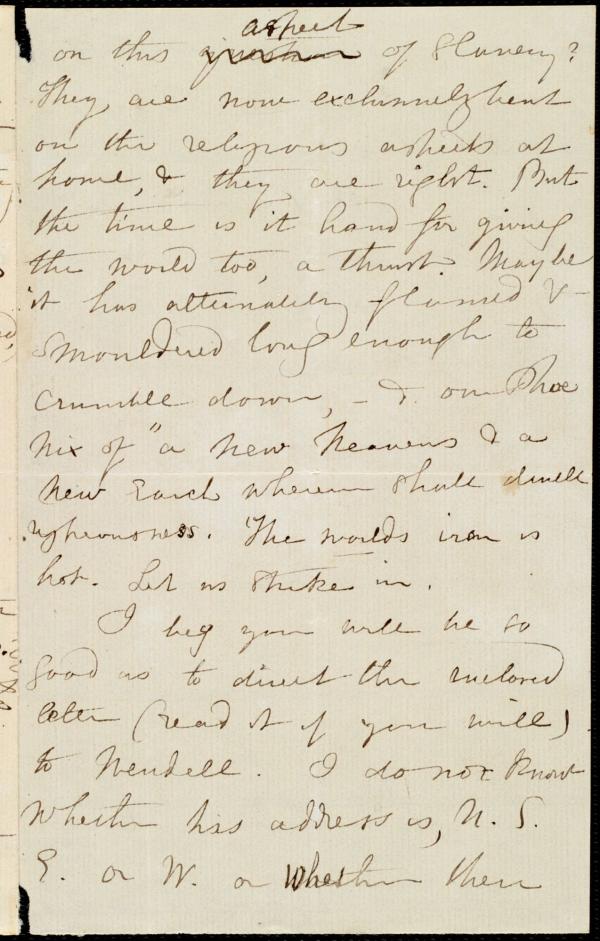 aspect
on this question of Slavery?
They are now exclusively bent
on the religious aspects at
home, & they are right. But
the time is at hand for giving
the world too, a thrust. Maybe
it has alternately flamed &
smouldered long enough to
crumble down, – & our Phoe
nix of "a new heavens & a
new Earth wherein shall dwell
righteousness. The worlds iron is
hot. Let us strike in.
I beg you will be so
good as to direct the inclosed
letter (read it if you will)
to Wendell. I do not know
whether his address is, N. S.
E. or W. or whether there